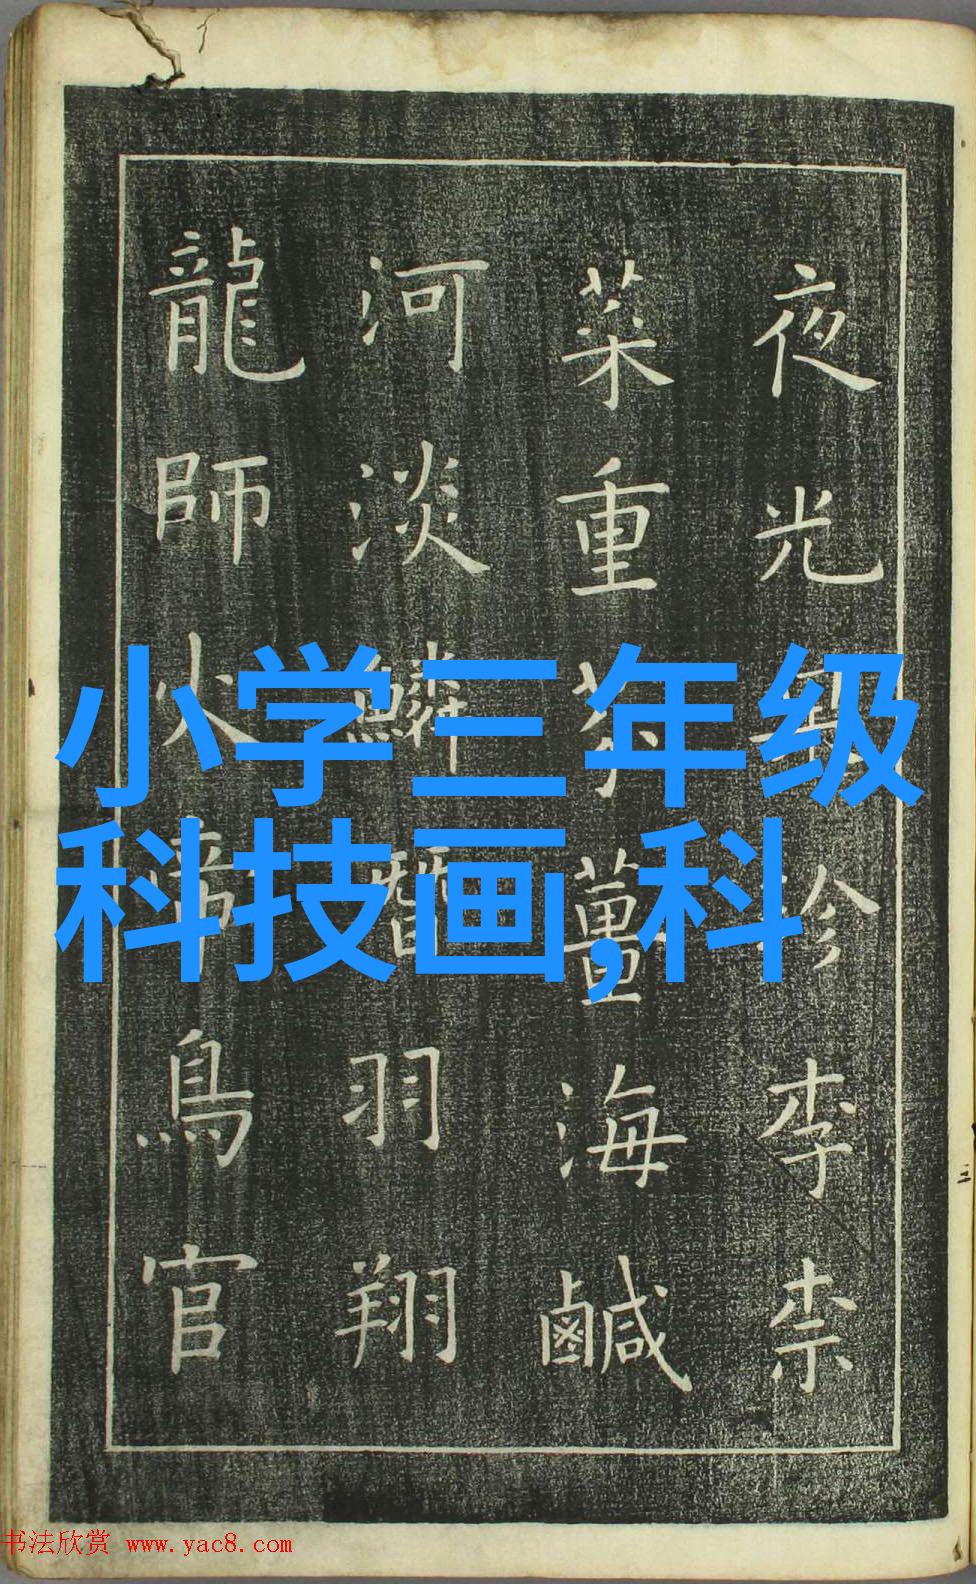 夜光珍李柰
菜重芥薑海鹹
河淡鱗潛羽翔
龍師火帝鳥官
小学三年级
科技画,科
书法欣赏 www.yac8.com